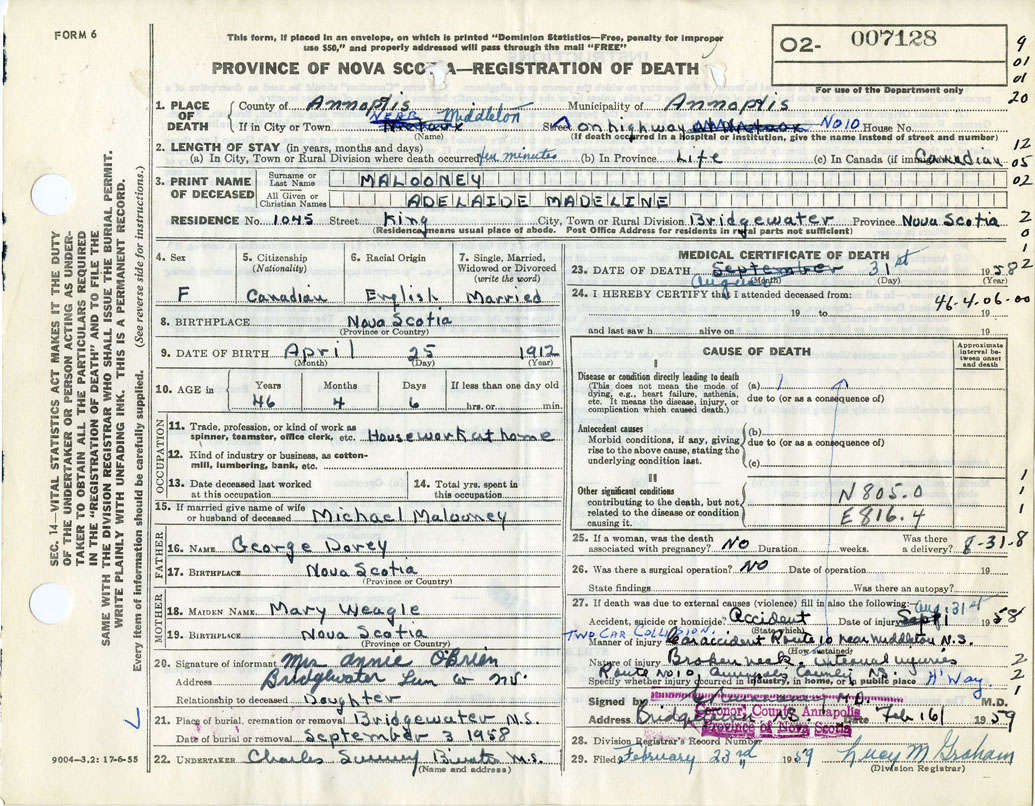 FORM 6
This form, if placed in an envelope, on which is printed "Dominion Statistics—Free, penalty for improper
use $50," and properly addressed will pass through the mail "FREE"
O2- 007128
For use of the Department only
PROVINCE OF NOVA SCOTIA—REGISTRATION OF DEATH
9
01
01
20
12
05
02
2
0
1
2
SEC. 14—VITAL STATISTICS ACT MAKES IT THE DUTY
OF THE UNDERTAKER OR PERSON ACTING AS UNDER-
TAKER TO OBTAIN ALL THE PARTICULARS REQUIRED
IN THE "REGISTRATION OF DEATH" AND TO FILE THE
SAME WITH THE DIVISION REGISTRAR WHO SHALL ISSUE THE BURIAL PERMIT.
WRITE PLAINLY WITH UNFADING INK. THIS IS A PERMANENT RECORD.
Every item of information should be carefully supplied. (See reverse side for instructions.)
1. PLACE OF DEATH County of Annaplis Municipality of Annaplis
If in City or Town near Middleton Street on highway No 10 House No.
(Name) (If death occurred in a hospital or institution, give the name instead of street and number)
2. LENGTH OF STAY (in years, months and days)
(a) In City, Town or Rural Division where death occurred few minutes (b) In Province Life (c) In Canada (if immigrant) Canadian
3. PRINT NAME OF DECEASED Surname or Last Name MALOONEY
All Given or Christian Names ADELAIDE MADELINE
RESIDENCE No. 1045 Street King City, Town or Rural Division Bridgewater Province Nova Scotia
(Residence means usual place of abode. Post Office Address for residents in rural parts not sufficient)
4. Sex 5. Citizenship (Nationality) 6. Racial Origin 7. Single, Married, Widowed or Divorced (write the word)
F Canadian English Married
8. BIRTHPLACE Nova Scotia
(Province or Country)
9. DATE OF BIRTH April 25 1912
(Month) (Day) (Year)
10. AGE in Years Months Days If less than one day old
46 4 6 hrs. or min.
OCCUPATION
11. Trade, profession, or kind of work as
spinner, teamster, office clerk, etc. Housework at home
12. Kind of industry or business, as cotton-
mill, lumbering, bank, etc.
13. Date deceased last worked at this occupation 14. Total yrs. spent in this occupation
15. If married give name of wife
or husband of deceased Michael Malooney
FATHER
16. NAME George Dorey
17. BIRTHPLACE Nova Scotia
(Province or Country)
MOTHER
18. MAIDEN NAME Mary Weagle
19. BIRTHPLACE Nova Scotia
(Province or Country)
20. Signature of informant Mrs Annie O'Brien
Address Bridgewater Lun Co N.S.
Relationship to deceased Daughter
21. Place of burial, cremation or removal Bridgewater N.S.
Date of burial or removal September 3 1958
22. UNDERTAKER Charles
(Name and address)
9004—3.2: 17-6-55
MEDICAL CERTIFICATE OF DEATH
23. DATE OF DEATH September August 31st 1958
(Month) (Day) (Year)
24. I HEREBY CERTIFY that I attended deceased from: 46-4-06-00
19 to 19
and last saw h alive on 19
CAUSE OF DEATH
Approximate interval between onset and death
I
Disease or condition directly leading to death
(This does not mean the mode of
dying, e.g., heart failure, asthenia,
etc. It means the disease, injury, or
complication which caused death.)
(a)
due to (or as a consequence of)
Antecedent causes
Morbid conditions, if any, giving
rise to the above cause, stating the
underlying condition last.
(b)
due to (or as a consequence of)
(c)
II
Other significant conditions
contributing to the death, but not
related to the disease or condition
causing it.
N 805.0
E 816.4
1
1
1
25. If a woman, was the death
associated with pregnancy? No Duration weeks. Was there a delivery? 8-31-8
26. Was there a surgical operation? No Date of operation 19
State findings Was there an autopsy?
27. If death was due to external causes (violence) fill in also the following:
Accident, suicide or homicide? Accident Date of injury Sept 1 Aug. 31st 1958
(State which)
TWO CAR COLLISION.
Manner of injury Car accident Route 10 near Middleton N.S.
(How sustained)
Nature of injury Broken neck. internal injuries
Route No 10, Annapolis County N.S.
Specify whether injury occurred in industry, in home, or in public place H'way.
2
2
1
Signed by M.D.
Coronor, County Annapolis
Province of Nova Scotia
Address Date Feb 16/ 1959
28. Division Registrar's Record Number
29. Filed February 23rd 1959 Lucy M Graham
(Division Registrar)